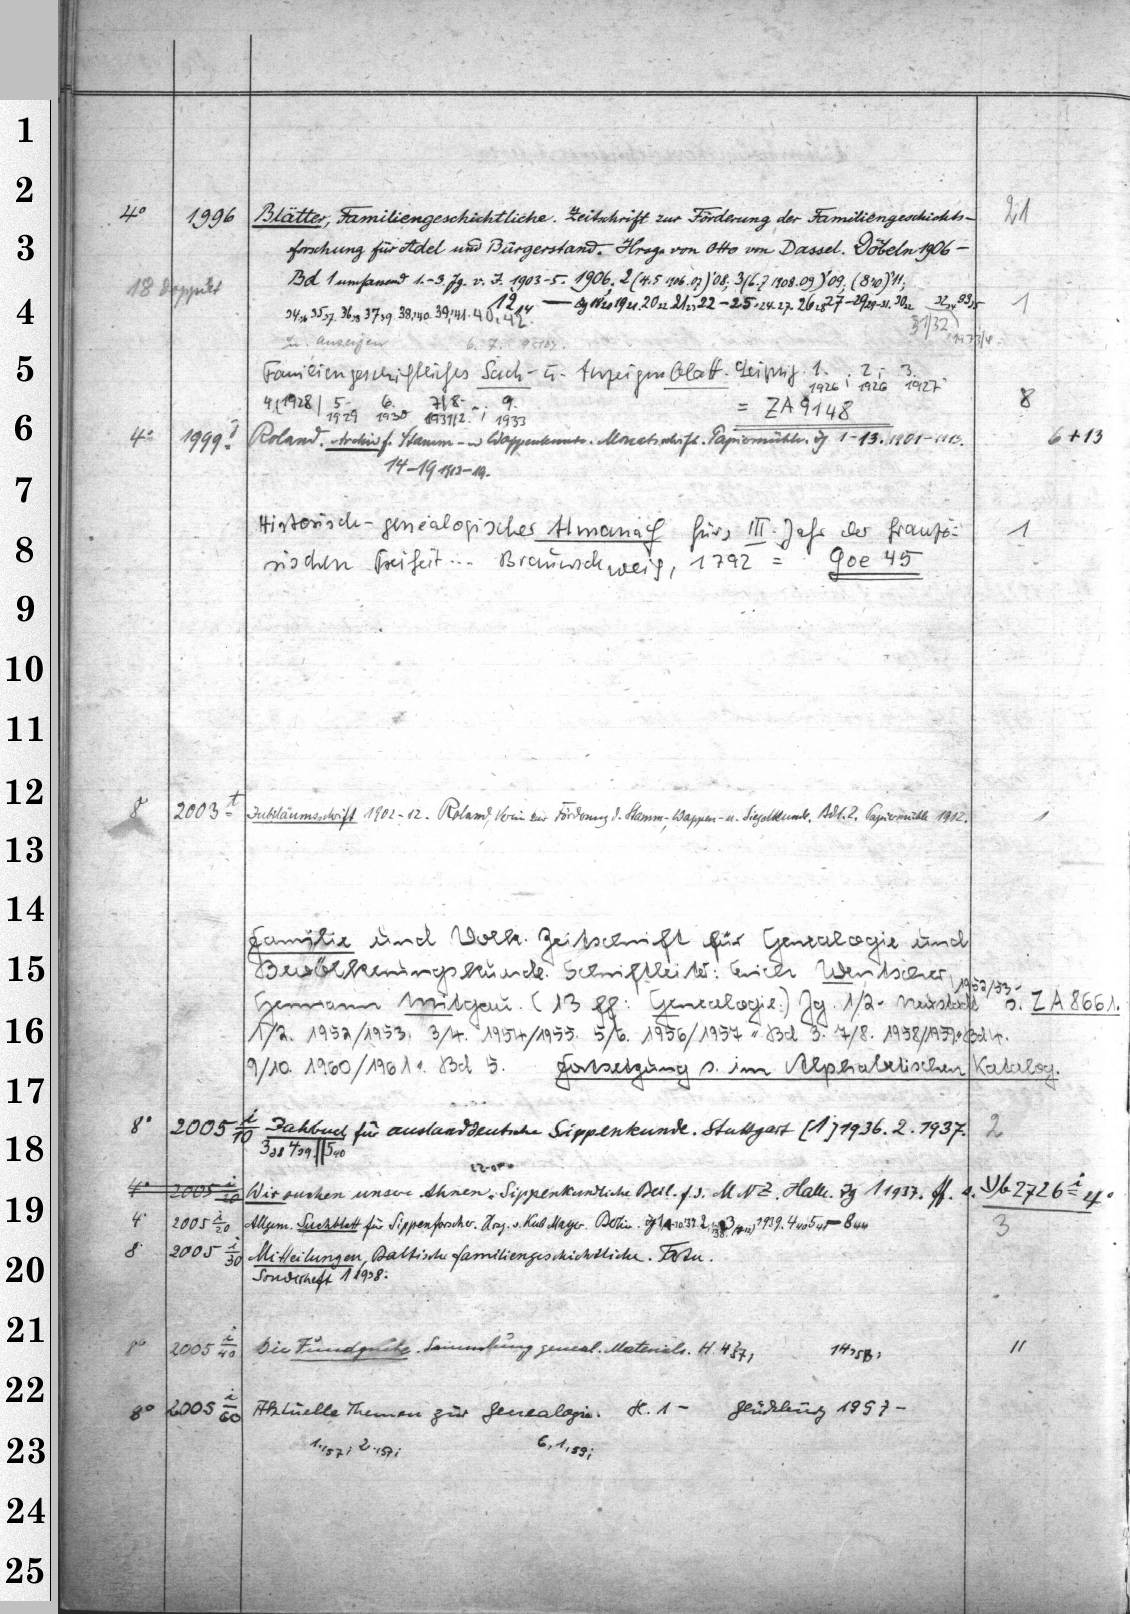 1
2
4° 1996 Blätter, Familiengeschichtliche. Zeitschrift zur Förderung der Familiengeschichts- 21
3
forschung für Adel und Bürgerstand. Hrsg. von Otto von Dassel. Döbeln 1906 –
18 doppelt Bd 1 umfassend 1.-3. Jg. v. J. 1903-5. 1906, 2 (4.5 1906.07) '08, 3 (6.7 1908.09) '09, (8 10) '11,
4
1
5
Familiengeschichtliches Such- u. Anzeigenblatt. Leipzig. 1. 1926; 2. 1926 3. 1927
4 (1928) 5. 1929 6. 1930 7/8. 1931/2.-; 9. 1933 = ZA 9148 8
6
4° 1999 Roland. Archiv f. Stamm- u Wappenkunde. Monatsschrift. Papiermühle. Jg 1-13. 1901-1913. 6+13
14-19 1913-19.
7
Historisch-genealogischer Almanach fürs III. Jahr der franzö- 1
8
sischen Freiheit... Braunschweig, 1792 = Goe 45
9
10
11
12
8° 2003 t Jubiläumsschrift 1902-12. Roland, Verein zur Förderung d. Stamm-, Wappen- u. Siegelkunde. Bd 1.2. Papiermühle 1912. 1
13
14
Familie und Volk. Zeitschrift für Genealogie und
15
Bevölkerungskunde. Schriftleiter: Erich Wentscher, 1952/53-
Hermann Mitgau. (13 ff: Genealogie.) Jg. 1/2- Neustadt s. ZA 8661.
16
1/2. 1952/1953. 3/4. 1954/1955. 5/6. 1956/1957 = Bd 3. 7/8. 1958/1959 = Bd 4.
9/10. 1960/1961 = Bd 5. Fortsetzung s. im Alphabetischen Katalog.
17
8° 2005 i/10 Jahrbuch für auslanddeutsche Sippenkunde. Stuttgart [1] 1936. 2. 1937. 2
18
3 38 4 39 || 5 40
4° 2005 i/20 Wir suchen unsere Ahnen. Sippenkundliche Beil. f. d. M N Z. Halle. Jg 1 1937. ff. s. Vb 2726 i 4°
19
4° 2005 i/20 Allgem. Suchblatt für Sippenforscher. Hrsg. v. Kurt Mayer. Berlin. 3
8° 2005 i/30 Mitteilungen, Baltische familiengeschichtliche.
20
Sonderheft 1 1938.
21
8° 2005 i/40 Die Fundgrube. Sammlung geneal. Materials. H. 4 57, 14 58, 11
22
8° 2005 i/60 Aktuelle Themen zur Genealogie. H. 1 – Glücksburg 1957 –
23
1. 57; 2. 57; 6, 1, 59;
24
25